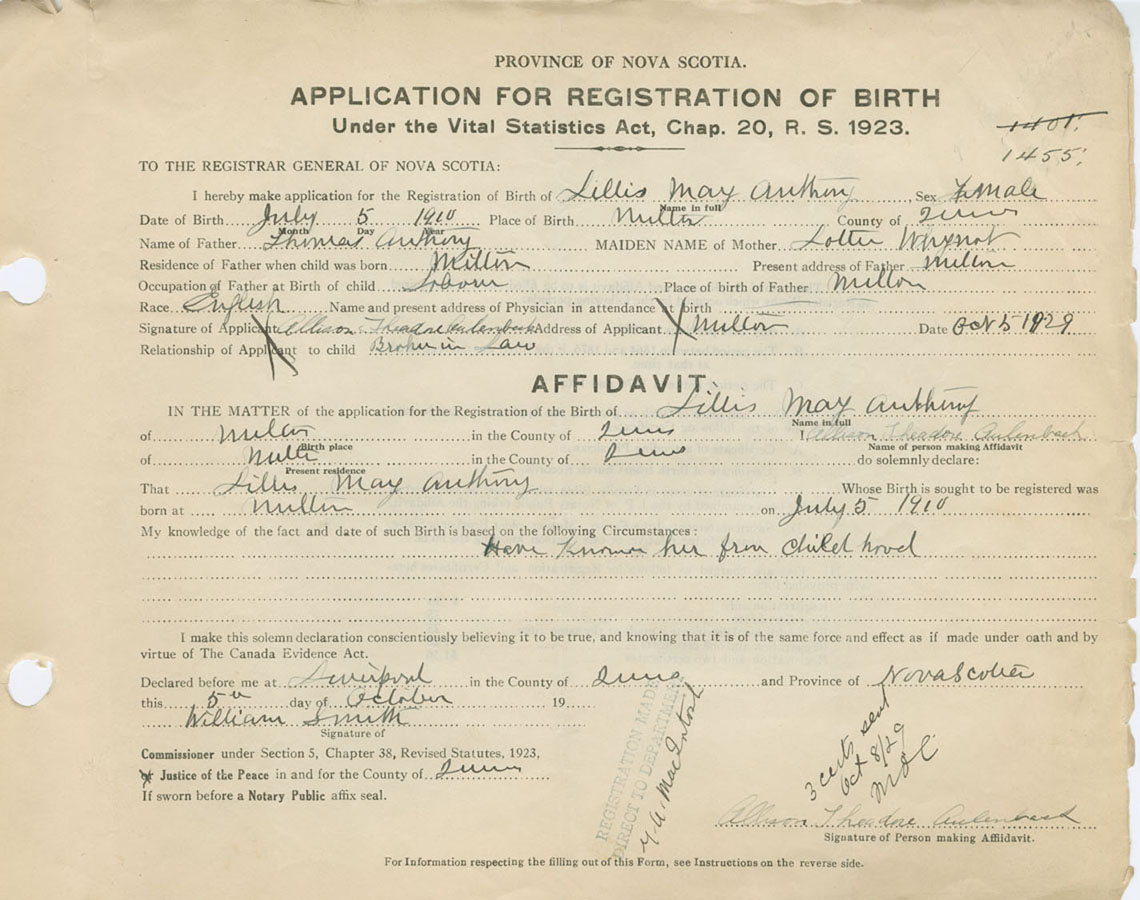 PROVINCE OF NOVA SCOTIA.
APPLICATION FOR REGISTRATION OF BIRTH
Under the Vital Statistics Act, Chap. 20, R. S. 1923.
1401.
1455.
TO THE REGISTRAR GENERAL OF NOVA SCOTIA:
I hereby make application for the Registration of Birth of Lillis May Anthony Sex Female
Name in full
Date of Birth July 5 1910 Place of Birth Milton County of Queens
Month Day Year
Name of Father Thomas Anthony MAIDEN NAME of Mother Lottie Whynot
Residence of Father when child was born Milton Present address of Father Milton
Occupation of Father at Birth of child Labour Place of birth of Father Milton
Race English Name and present address of Physician in attendance at birth
Signature of Applicant Allison Theadore Aulenback Address of Applicant X Milton Date Oct 5 1929
Relationship of Applicant to child Brother in Law
AFFIDAVIT.
IN THE MATTER of the application for the Registration of the Birth of Lillis May Anthony
Name in full
of Milton in the County of Queens I Allison Theadore Aulenback
Birth place Name of person making Affidavit
of Milton in the County of Queens do solemnly declare:
Present residence
That Lillis May Anthony Whose Birth is sought to be registered was
born at Milton on July 5 1910
My knowledge of the fact and date of such Birth is based on the following Circumstances:
Have Known her from child hood
I make this solemn declaration conscientiously believing it to be true, and knowing that it is of the same force and effect as if made under oath and by
virtue of The Canada Evidence Act.
Declared before me at Liverpool in the County of Queens and Province of Nova Scotia
this 5th day of October 19
William Smith
Signature of
Commissioner under Section 5, Chapter 38, Revised Statutes, 1923,
or Justice of the Peace in and for the County of Queens
If sworn before a Notary Public affix seal.
REGISTRATION MADE
DIRECT TO DEPARTMENT
MacIntosh
3 certs sent
Oct 8/29
Allison Theadore Aulenback
Signature of Person making Affidavit.
For Information respecting the filling out of this Form, see Instructions on the reverse side.